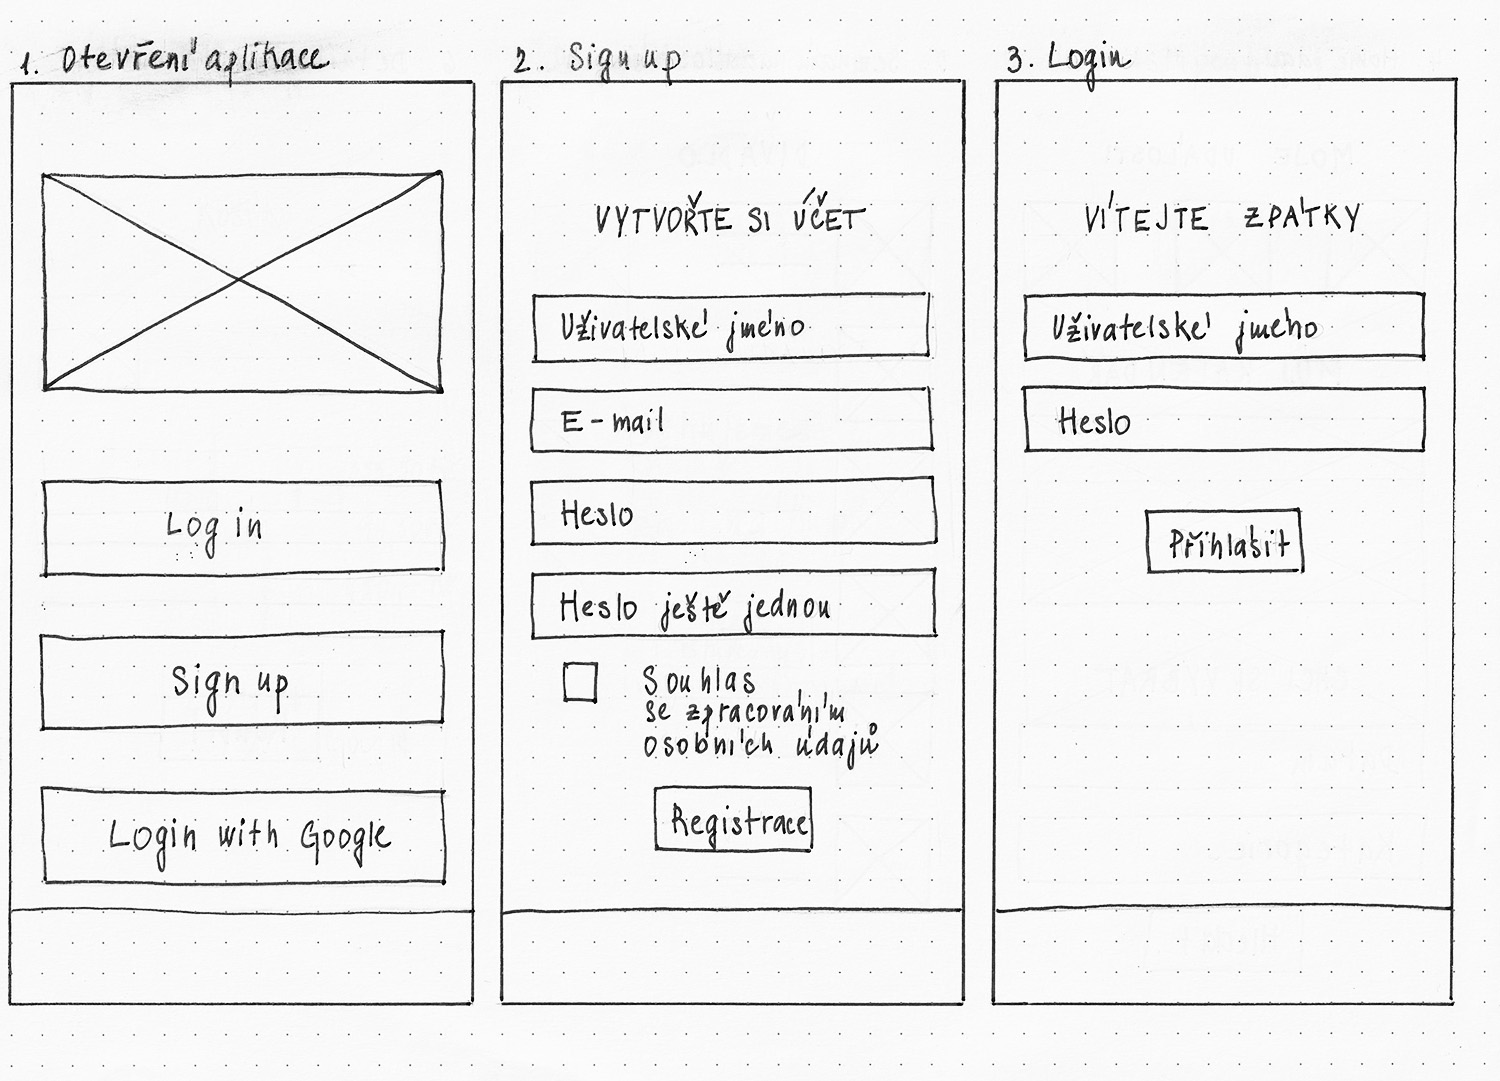 1. Otevření aplikace
Log in
Sign up
Login with Google
2. Sign up
VYTVOŘTE SI ÚČET
Uživatelské jméno
E-mail
Heslo
Heslo ještě jednou
Souhlas
se zpracováním
osobních údajů
Registrace
3. Login
VÍTEJTE ZPÁTKY
Uživatelské jméno
Heslo
Přihlásit